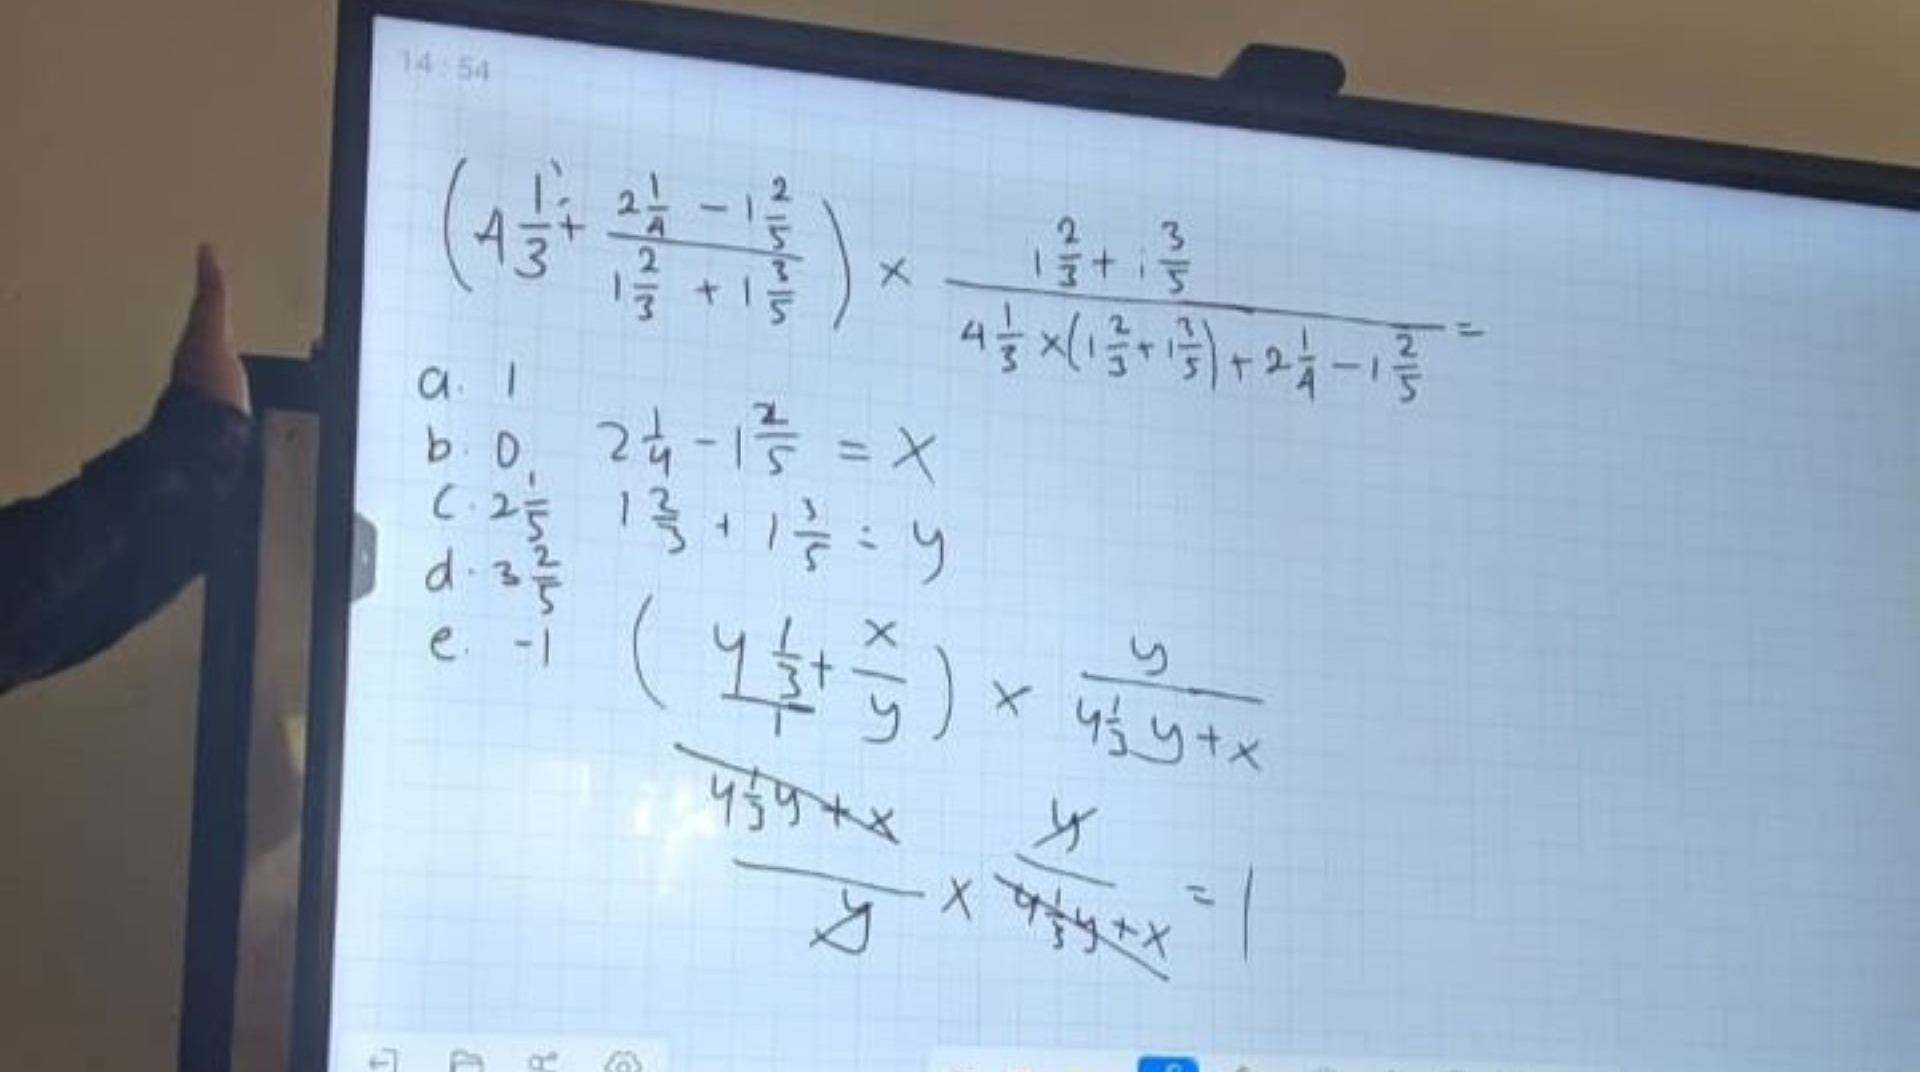 14:54
(4 1/3 + (2 1/4 − 1 2/5)/(1 2/3 + 1 3/5)) × (1 2/3 + 1 3/5)/(4 1/3 ×(1 2/3 + 1 3/5) + 2 1/4 − 1 2/5) =
a. 1
b. 0
c. 2 1/5
d. 3 2/5
e. -1
2 1/4 - 1 2/5 = x
1 2/3 + 1 3/5 = y
((4 1/3)/1 + x/y) × y/(4 1/3 y + x)
(4 1/3 y + x)/y × y/(4 1/3 y + x) = 1